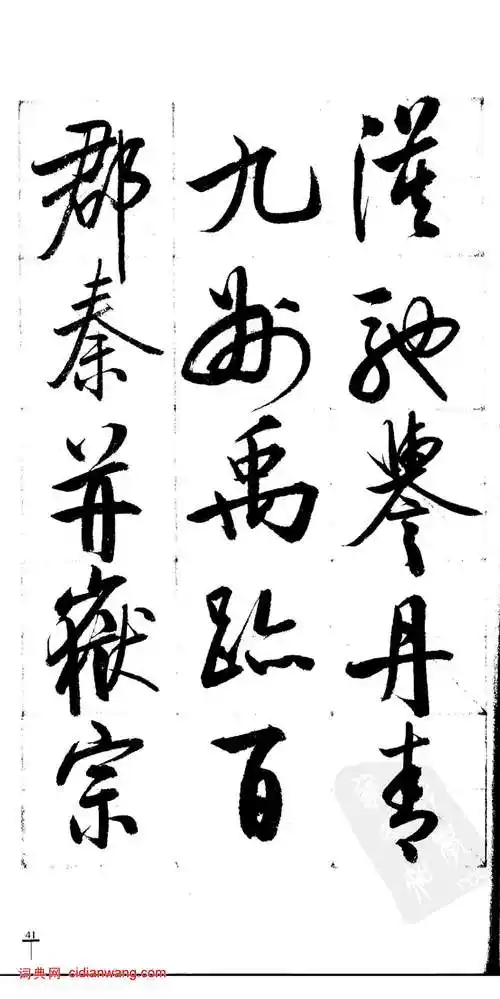 漠馳譽丹青
九州禹跡百
郡秦并嶽宗
41
词典网 cidianwang.com